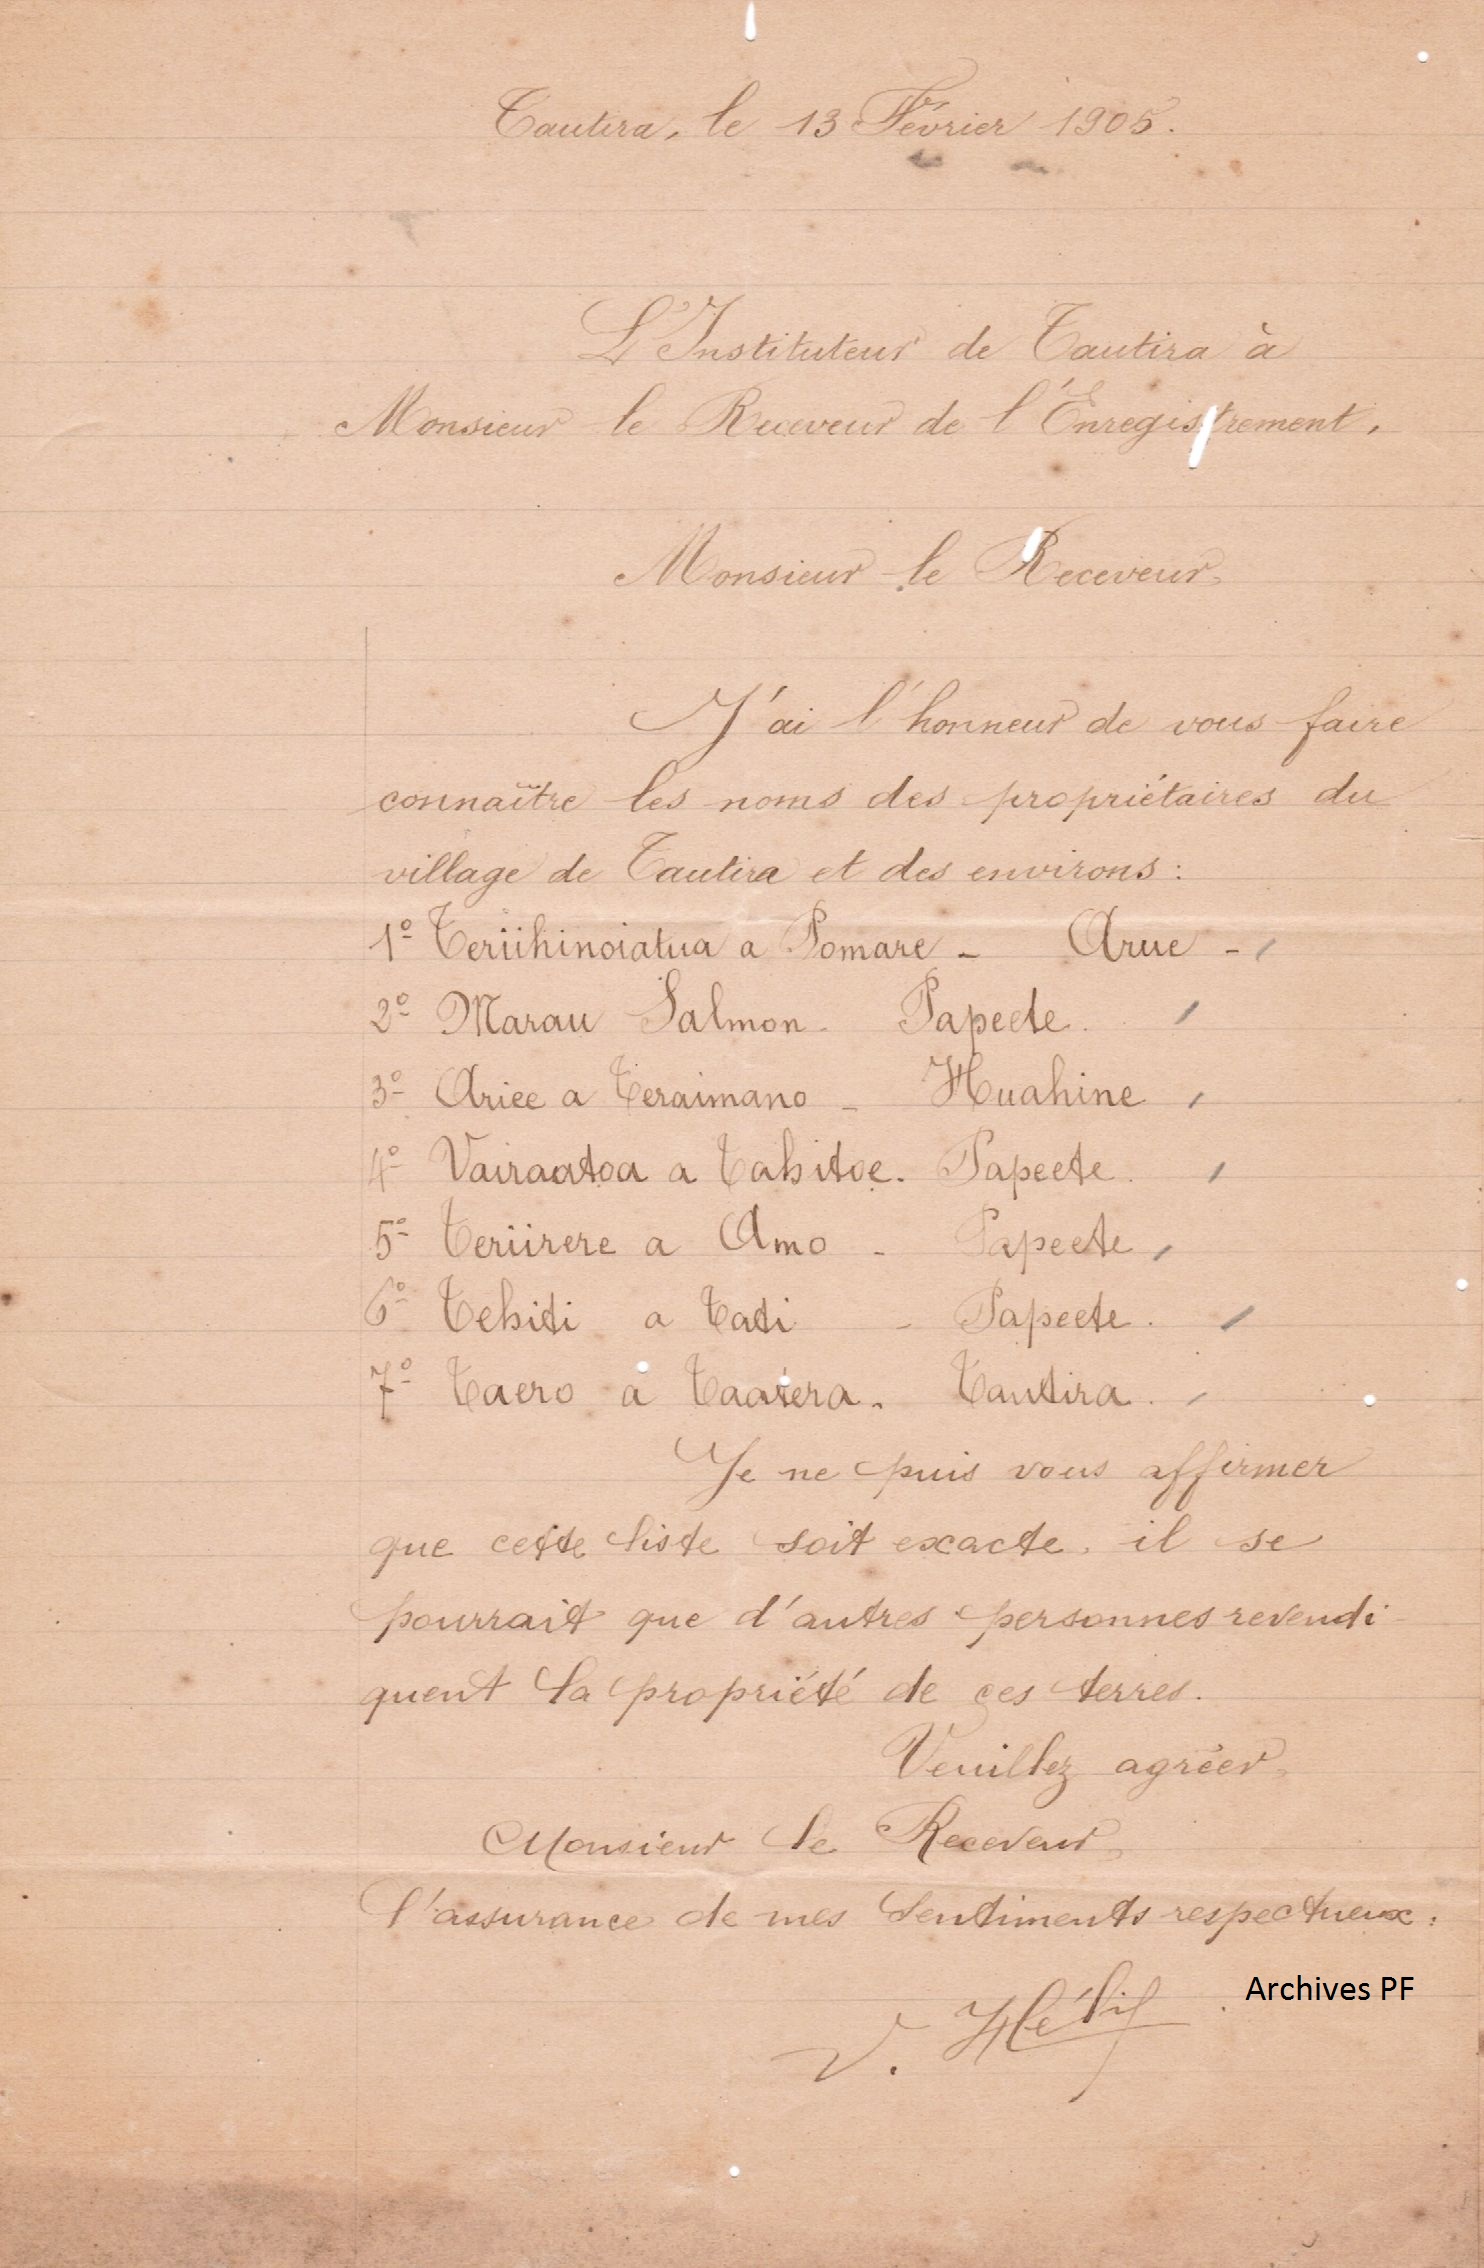 Tautira, le 13 Février 1905.
L'Instituteur de Tautira à
Monsieur le Receveur de l'Enregistrement,
Monsieur le Receveur,
J'ai l'honneur de vous faire
connaître les noms des propriétaires du
village de Tautira et des environs:
1º Teriihinoiatua a Pomare - Arue -
2º Marau Salmon. Papeete.
3º Ariee a Teraimano - Huahine
4º Vairaatoa a Tahitoe. Papeete.
5º Teriirere a Amo - Papeete
6º Tehiti a Tati - Papeete.
7º Taero a Taatera. Tautira.
Je ne puis vous affirmer
que cette liste soit exacte, il se
pourrait que d'autres personnes revendi-
quent la propriété de ces terres.
Veuillez agréer,
Monsieur le Receveur,
l'assurance de mes sentiments respectueux:
V.
Archives PF